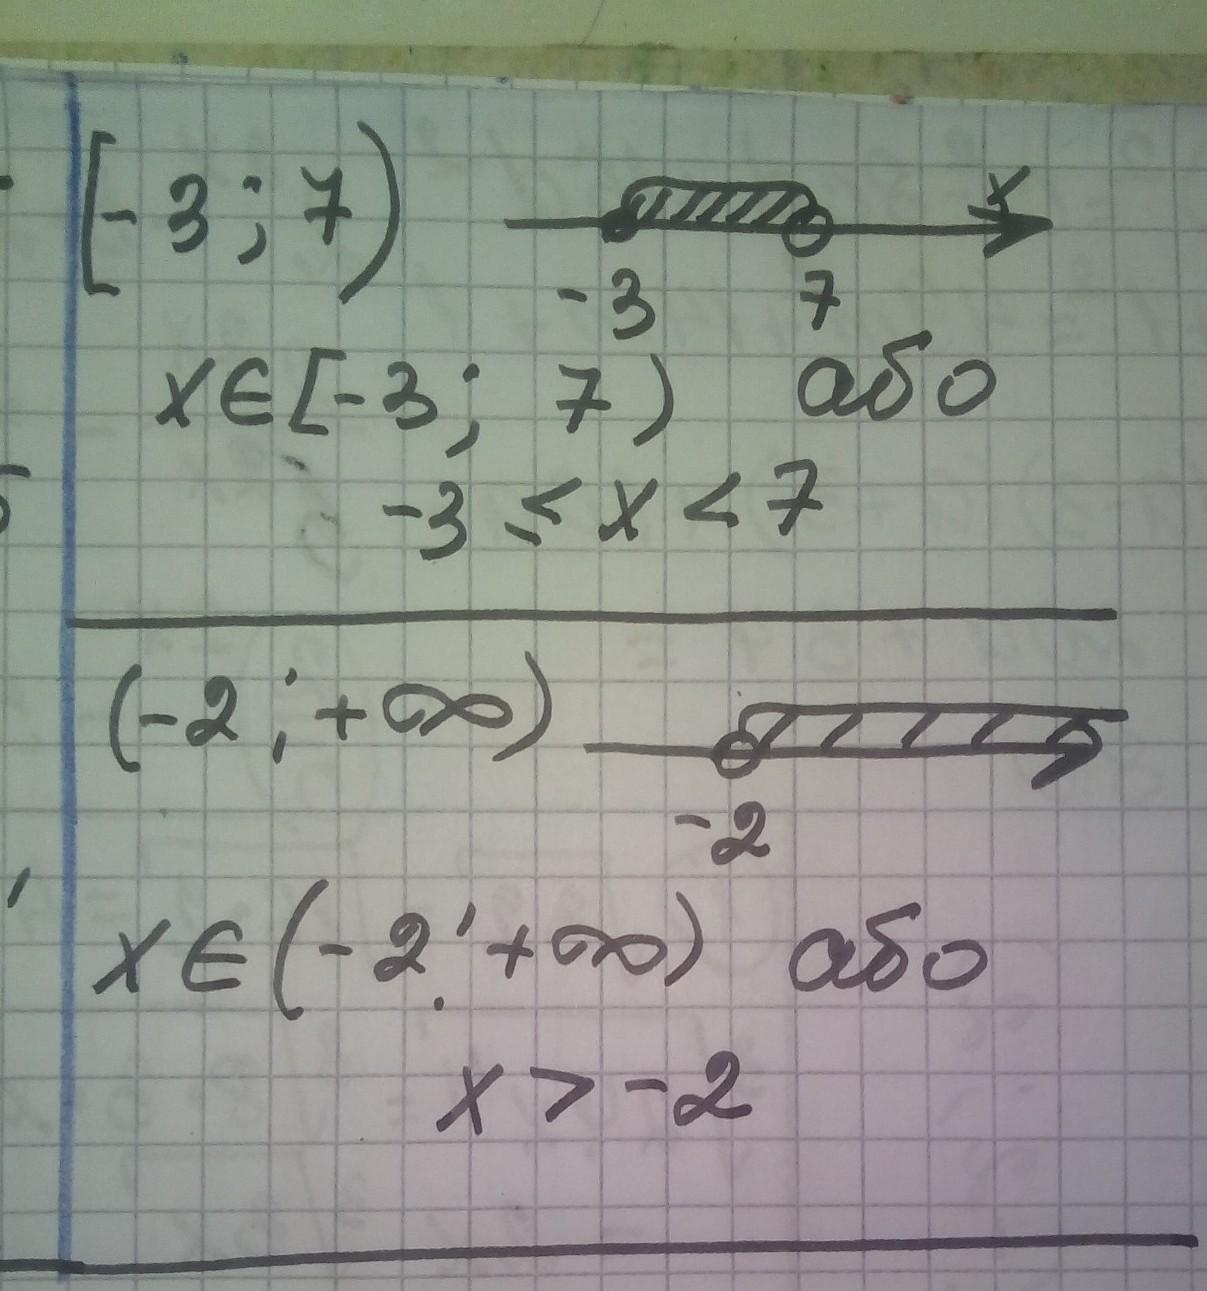 [-3; 7)
x
-3 7
x∈[-3; 7) або
-3 ≤ x < 7
(-2; +∞)
-2
x∈(-2; +∞) або
x > -2